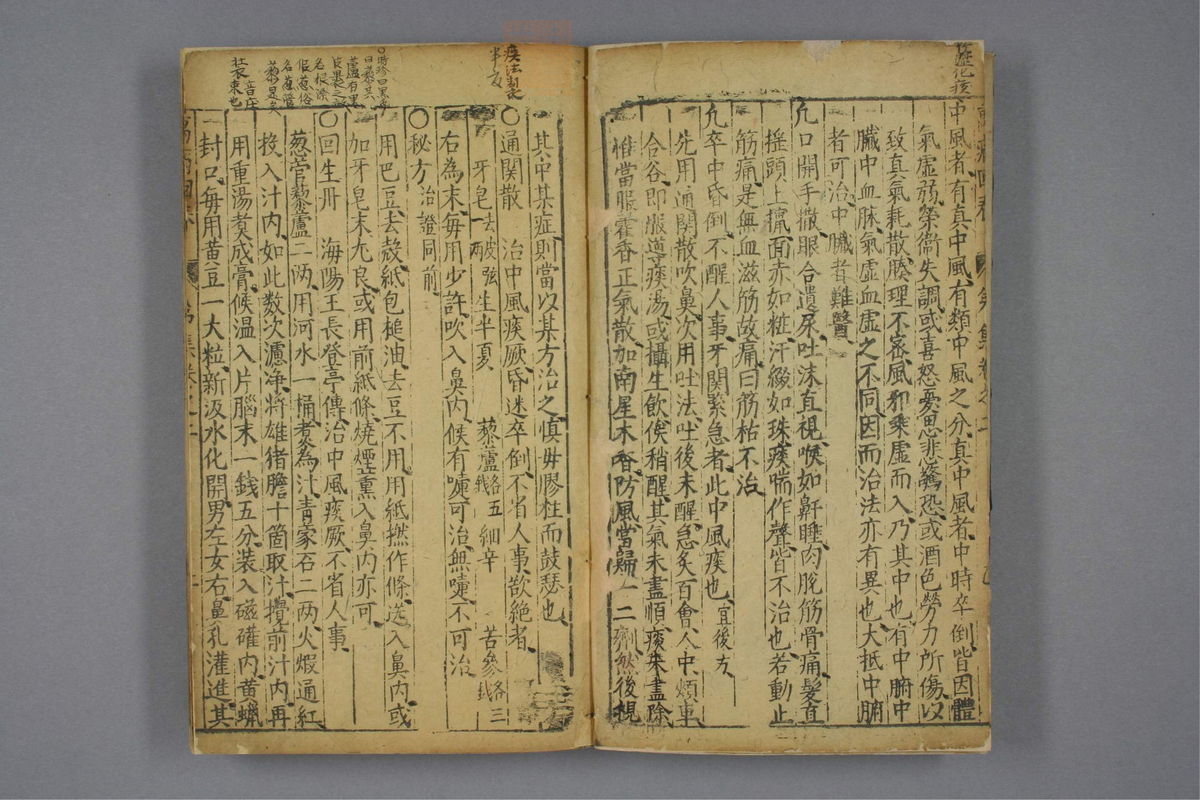 中風者有真中風有類中風之分真中風者中時卒倒皆因體
氣虛弱榮衛失調或喜怒憂思悲驚恐或酒色勞力所傷以
致真氣耗散腠理不密風邪乘虛而入乃其中也有中腑中
臟中血脉氣虛血虛之不同因而治法亦有異也大抵中腑
者可治中臟者難醫
凢口開手撒眼合遺尿吐沫直視喉如鼾睡肉脫筋骨痛髮直
揺頭上攛面赤如粧汗綴如珠痰喘作聲皆不治也若動止
筋痛是無血滋筋故痛曰筋枯不治
凢卒中昏倒不醒人事牙關緊急者此中風痰也宜後方
先用通関散吹鼻次用吐法吐後未醒急灸百會人中頰車
合谷即服導痰湯或攝生飲俟稍醒其氣未盡順痰未盡除
惟當服霍香正氣散加南星木香防風當歸一二劑然後視
痰法製
半夏
其中某症則當以某方治之慎毋膠柱而鼓瑟也
〇通關散 治中風痰厥昏迷卒倒不省人事欲絕者
牙皂去皮弦 生半夏 藜蘆 細辛 苦參
右為末每用少許吹入鼻內候有嚏可治無嚏不可治
〇秘方治證同前
用巴豆去殼紙包槌油去豆不用用紙撚作條送入鼻內或
加牙皂末尤良或用前紙條燒煙熏入鼻內亦可
〇回生丹 海陽王長登亭傳治中風痰厥不省人事
葱管藜蘆二两用河水一桶煑為汁青蒙石二两火煅通紅
投入汁內如此数次濾净將雄猪膽十箇取汁攪前汁內再
用重湯煑成膏候温入片腦末一錢五分装入磁礶內黄蠟
封口每用黄豆一大粒新汲水化開男左女右鼻孔灌進其